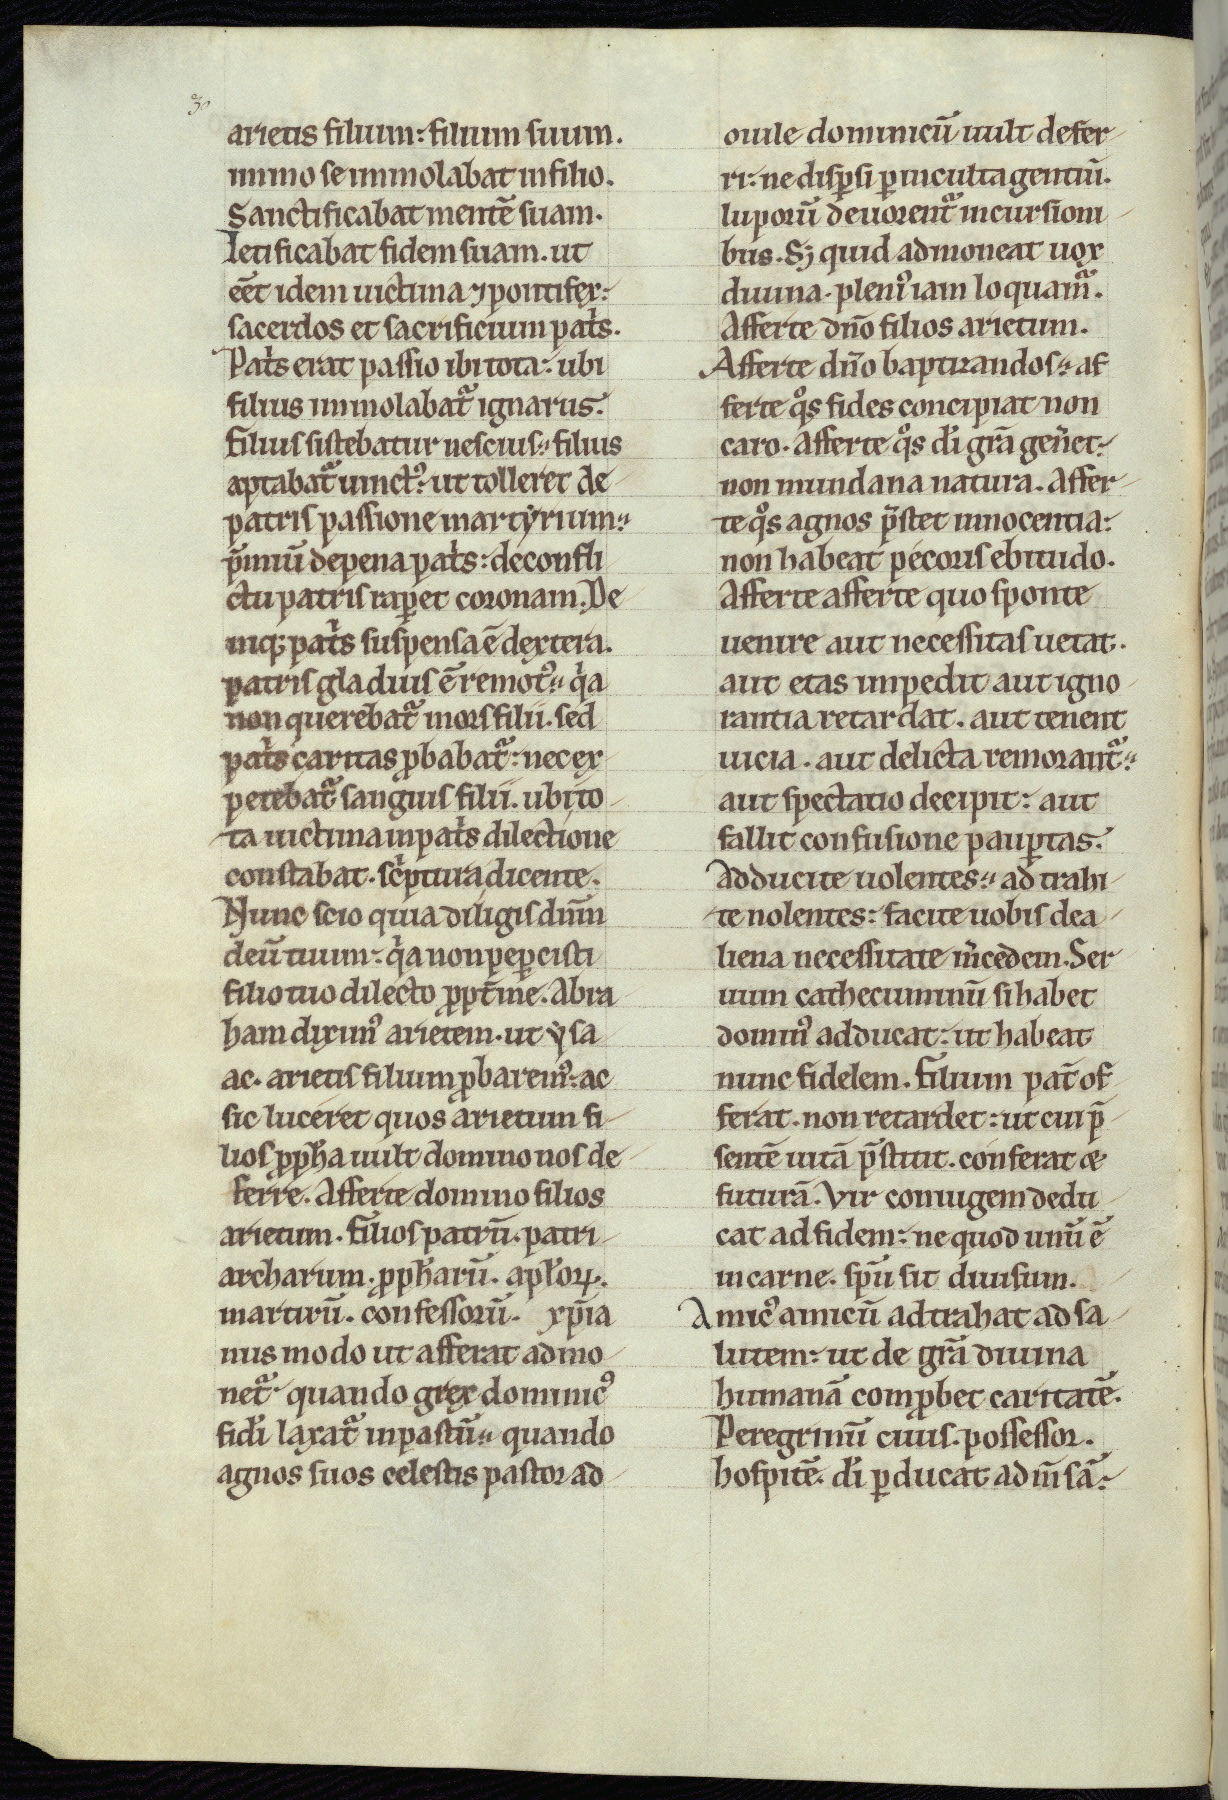 30
arietis filium: filium suum.
immo se immolabat in filio.
Sanctificabat mentē suam.
Letificabat fidem suam. ut
eēt idem uictima ⁊ pontifex:
sacerdos et sacrificium pat͛s.
Pat͛s erat passio ibi tota: ubi
filius immolabat᷑ ignarus.
Filius sistebatur nescius: filius
aptabat᷑ uinctꝰ: ut tolleret de
patris passione martyrium:
p̄miū de pena pat͛s: de confli
ctu patris raꝑet coronam. De
niq; pat͛s suspensa ē dextera.
patris gladius ē remotꝰ: qͥa
non querebat᷑ mors filii. sed
pat͛s caritas ꝓbabat᷑: nec ex
petebat᷑ sanguis filii. ubi to
ta uictima in pat͛s dilectione
constabat. scͥptura dicente.
Nunc scio quia diligis dnm̄
deū tuum: qͥa non peꝑcisti
filio tuo dilecto ꝓpt͛ me. Abra
ham diximꝰ arietem. ut ẏsa
ac. arietis filium ꝓbaremꝰ: ac
sic luceret quos arietum fi
lios ꝓpħa uult domino nos de
ferre. Afferte domino filios
arietum. filios patrū. patri
archarum. ꝓpħarū. apl̄oꝝ.
martirū. confessorū. xp̄ia
nus modo ut afferat admo
net᷑ quando grex dominicꝰ
fidī laxat᷑ in pastū: quando
agnos suos celestis pastor ad
ouile dominicū uult defer
ri: ne disꝑsi ꝑ inculta gentiū.
luporū deuorent᷑ incursioni
bus. Sꝫ quid admoneat uox
diuina. pleniꝰ iam loquam᷑.
Afferte dn̄o filios arietum.
Afferte dn̄o baptizandos: af
ferte qͦs fides concipiat non
caro. Afferte qͦs dī grā gen͛et:
non mundana natura. Affer
te qͦs agnos p̄stet innocentia:
non habeat pecoris ebitudo.
Afferte afferte quo sponte
uenire aut necessitas uetat.
aut etas impedit aut igno
rantia retardat. aut tenent
uicia. aut delicta remorant᷑:
aut spectatio decipit: aut
fallit confusione pauꝑtas.
Adducite uolentes: adtrahi
te nolentes: facite uobis de a
liena necessitate m͛cedem. Ser
uum cathecuminū si habet
dominꝰ adducat: ut habeat
nunc fidelem. Filium pat͛ of
ferat. non retardet: ut cui p̄
sentē uitā p̄stitit. conferat ⁊
futurā. Vir coniugem dedu
cat ad fidem: ne quod unū ē
in carne. spū sit diuisum.
Amicꝰ amicū adtrahat ad sa
lutem: ut de grā diuina
humanā comꝓbet caritatē.
Peregrinū ciuis. possessor.
hospitē. dī ꝑducat ad m̄sā: